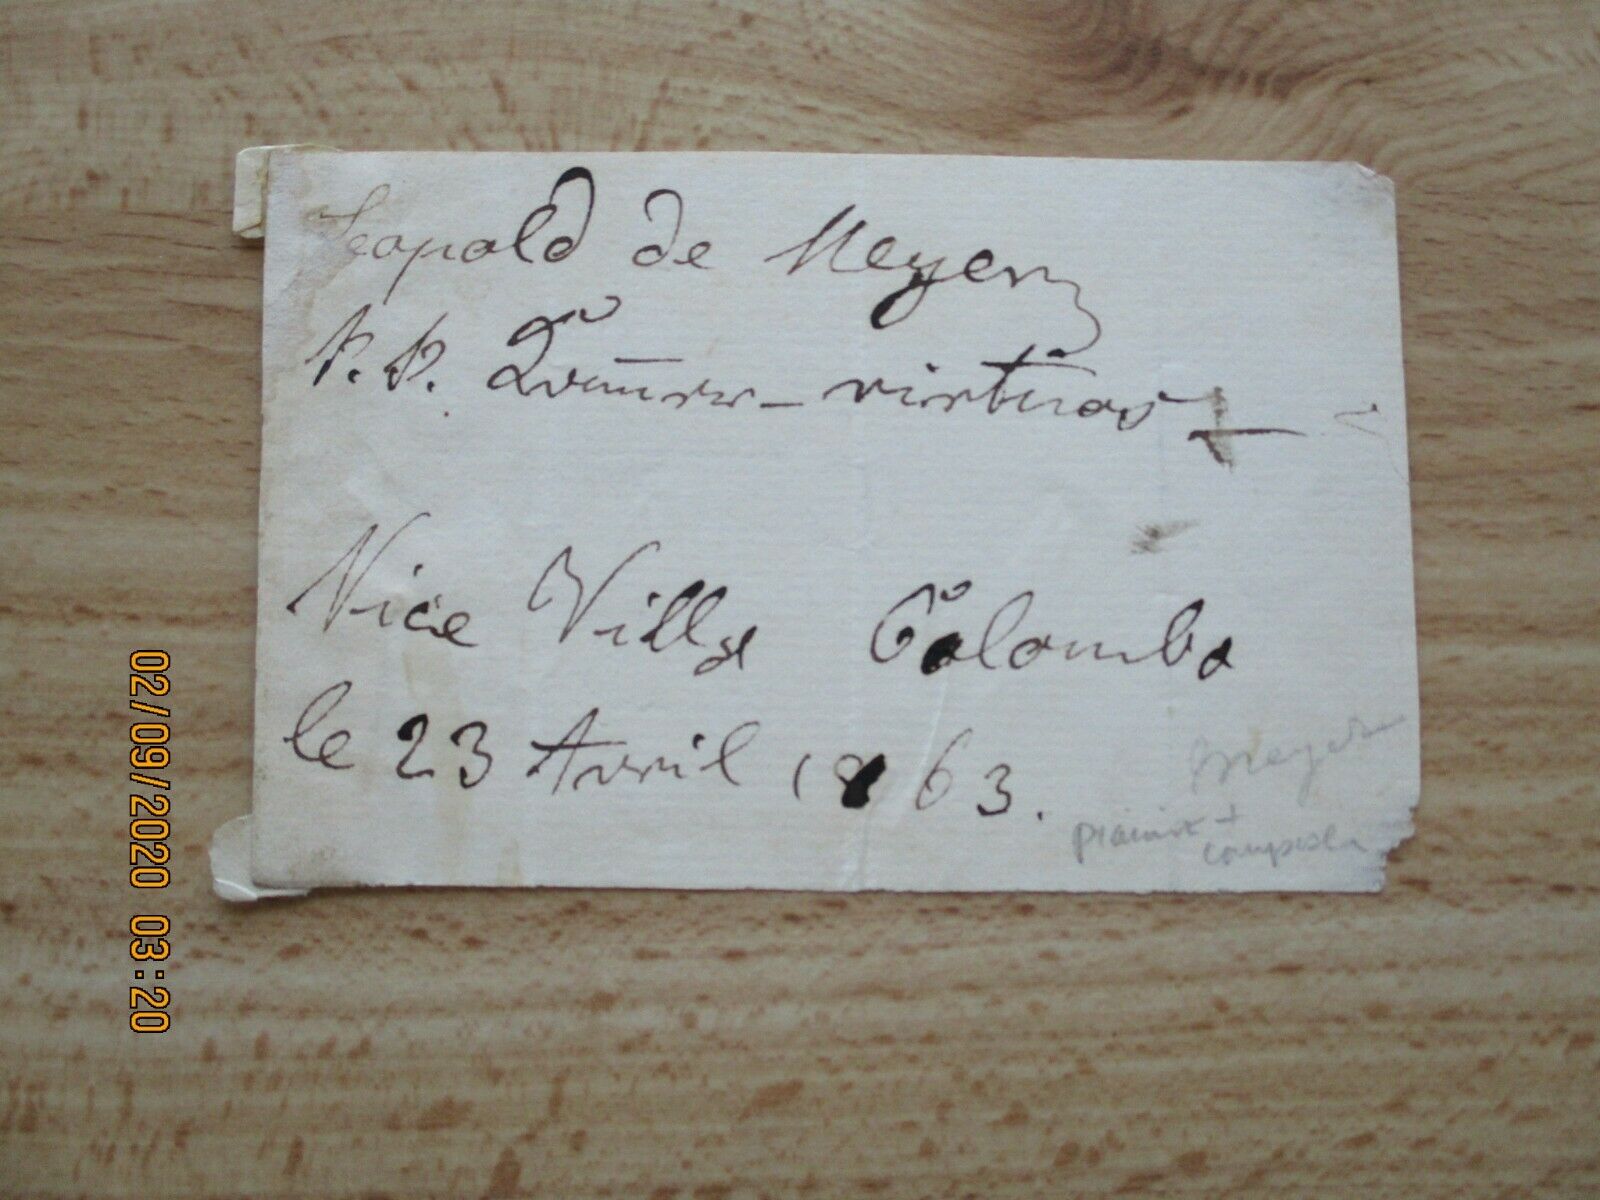 Leopold de Meyer
K. K. Kammer-virtuos
Nice Villa Colombo
le 23 Avril 1863.
Meyer
pianist +
composer
02/09/2020 03:20